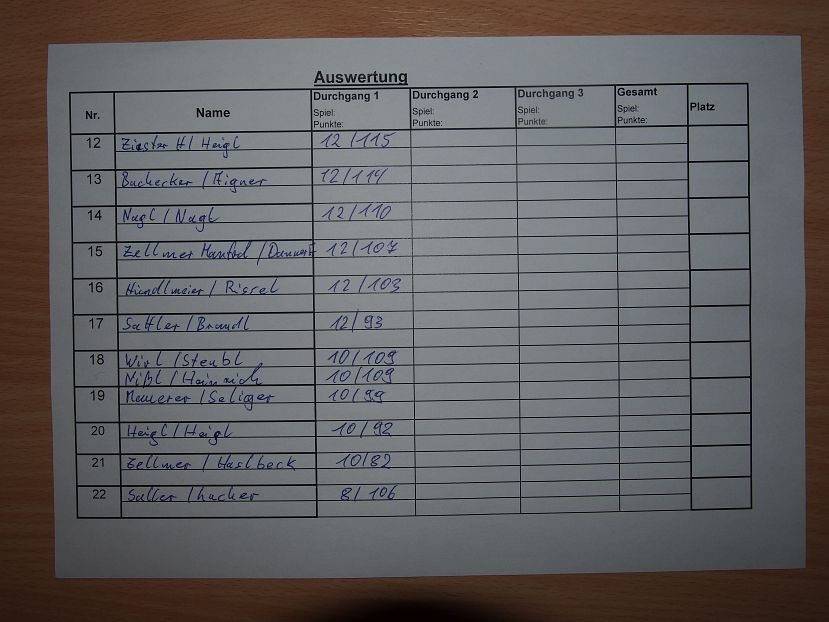 Auswertung
Nr. Name Durchgang 1 Durchgang 2 Durchgang 3 Gesamt Platz
Spiel: Spiel: Spiel: Spiel:
Punkte: Punkte: Punkte: Punkte:
12 H / Heigl 12 / 115
13 Buchecker / Aigner 12 / 114
14 Nagl / Nagl 12 / 110
15 Zellmer Manfred / 12 / 107
16 Hundlmeier / 12 / 103
17 Sattler / Brandl 12 / 93
18 Wirl / Steubl 10 / 109
Nißl / Heinrich 10 / 109
19 Maurer / Seliger 10 / 99
20 Heigl / Heigl 10 / 92
21 Zellmer / Haslbeck 10 / 82
22 Saller / hacker 8 / 106